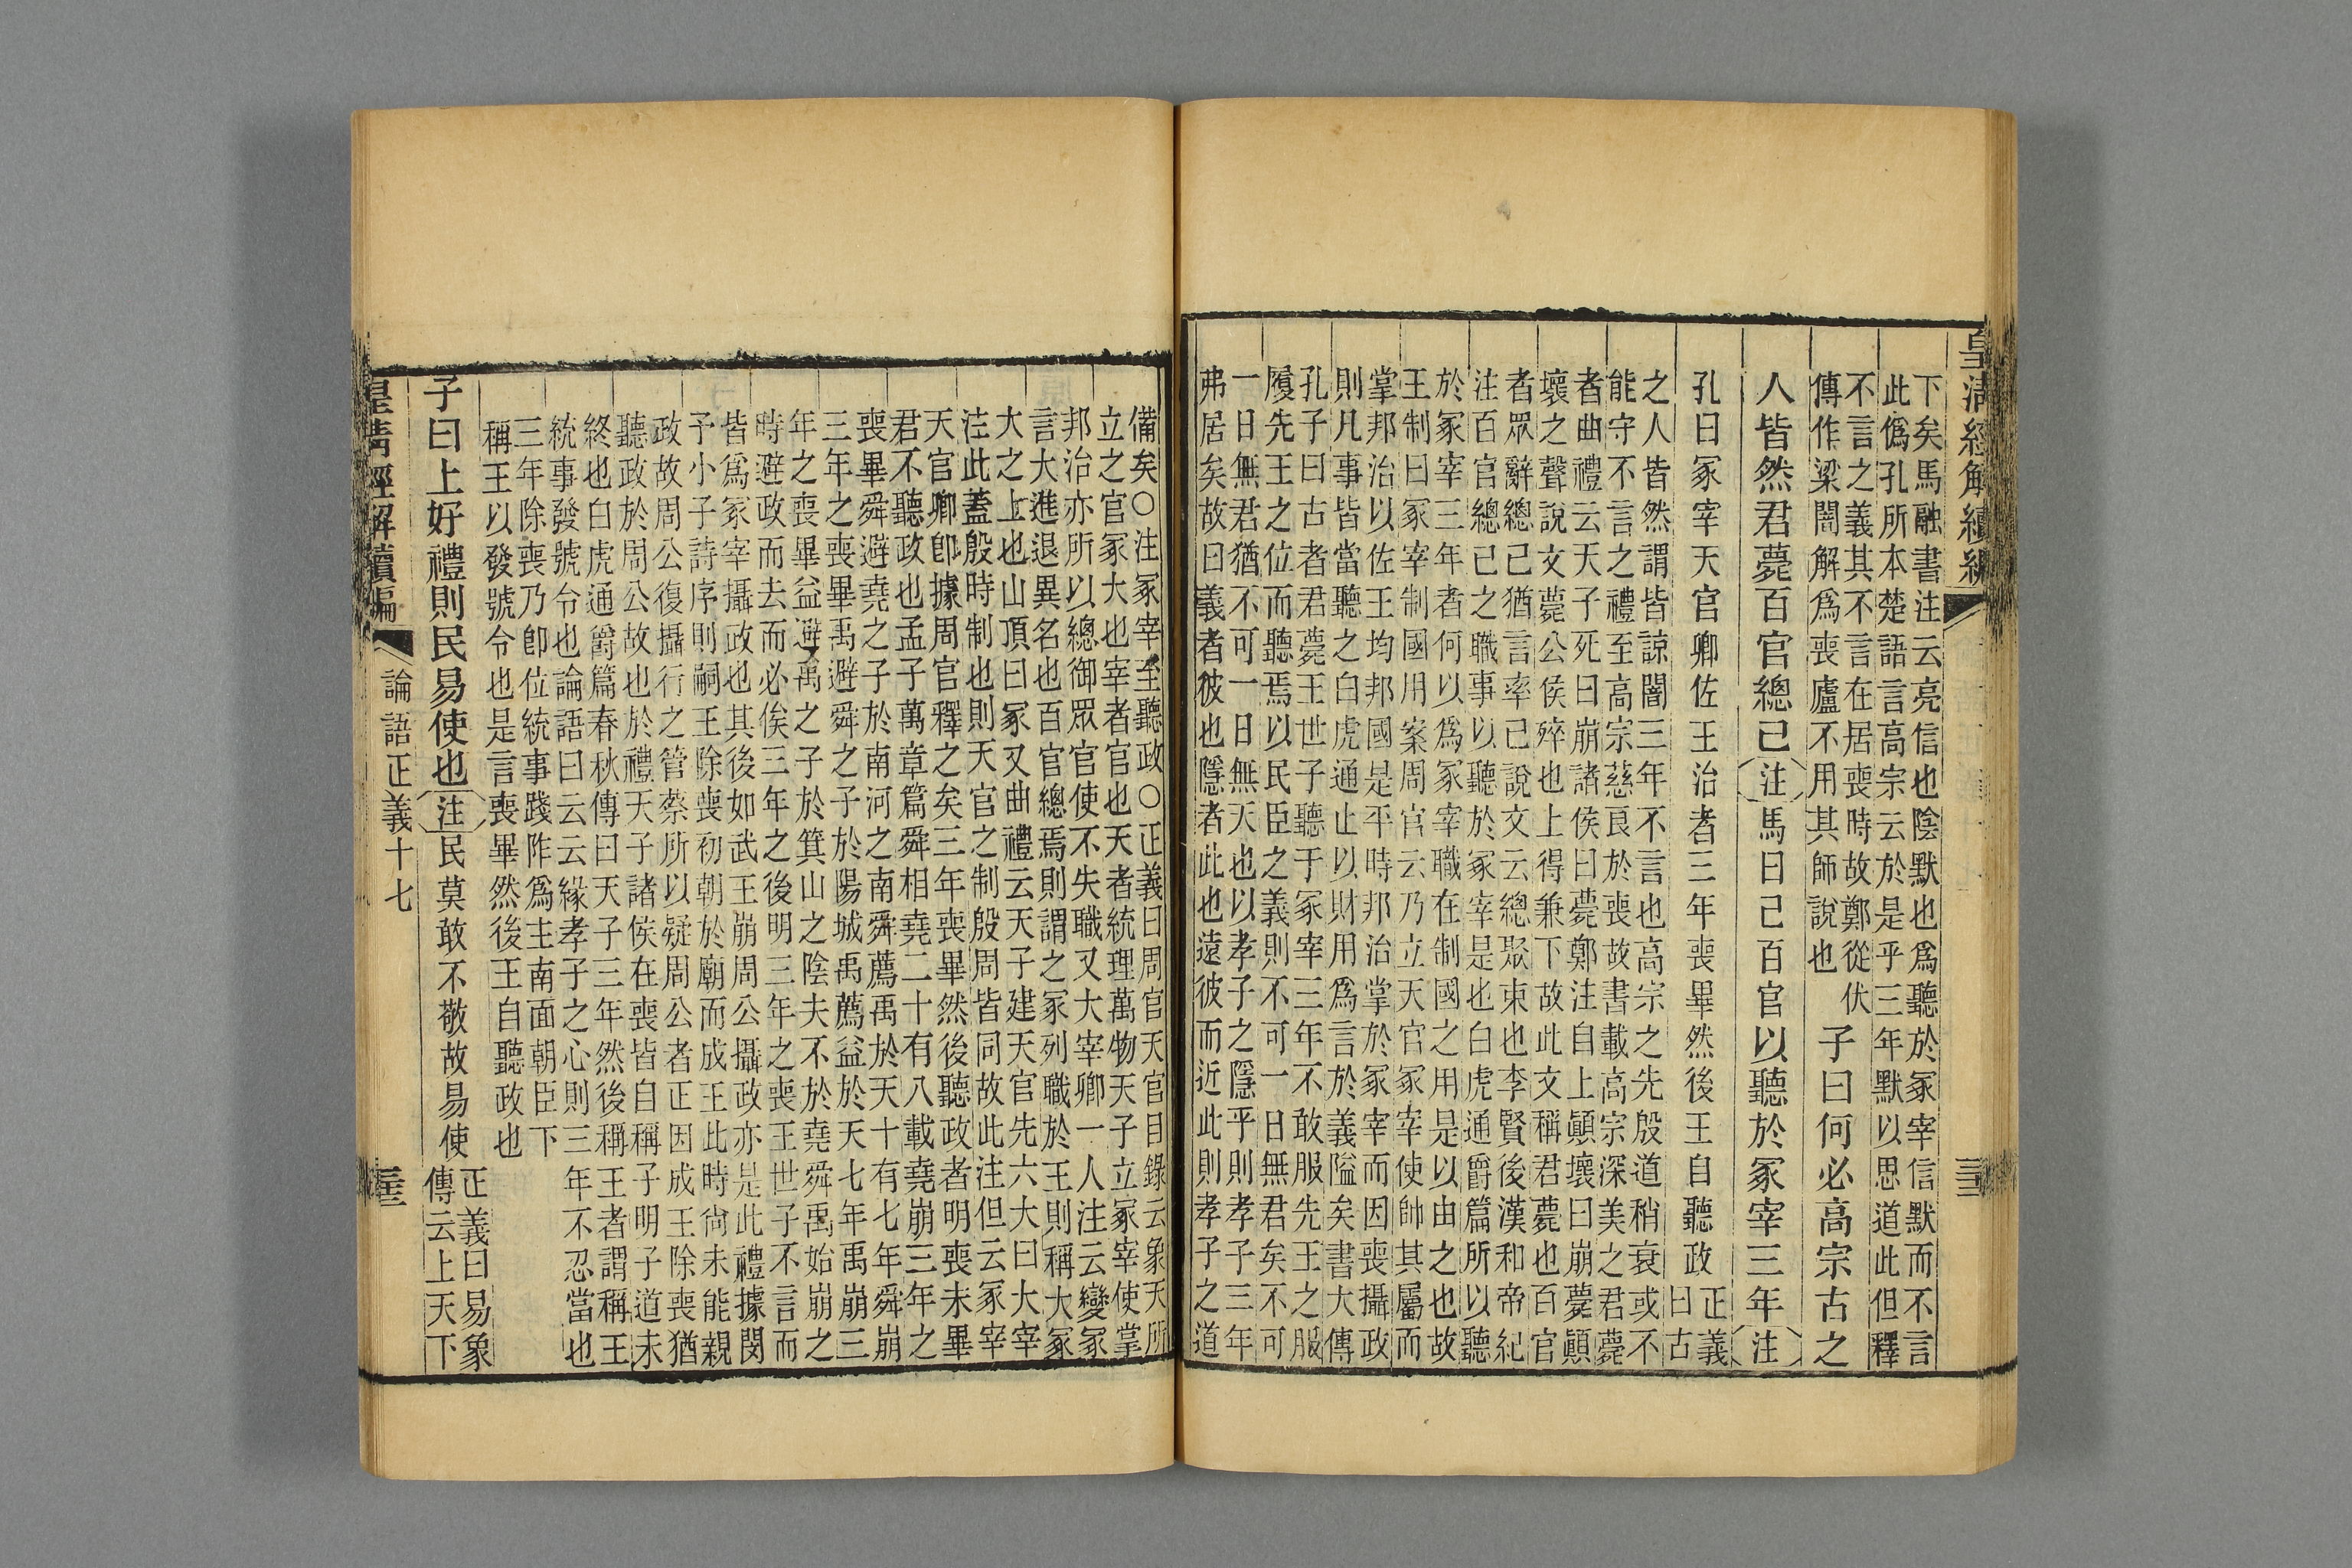 皇清經解續編
下矣馬融書注云亮信也陰默也爲聽於冢宰信默而不言
此僞孔所本楚語言高宗云於是乎三年默以思道此但釋
不言之義其不言在居喪時故鄭從伏
傳作梁闇解爲喪廬不用其師說也
子曰何必高宗古之
人皆然君薨百官總己注馬曰己百官以聽於冢宰三年注
孔曰冢宰天官卿佐王治者三年喪畢然後王自聽政
正義
曰古
之人皆然謂皆諒闇三年不言也高宗之先殷道稍衰或不
能守不言之禮至高宗慈良於喪故書載高宗深美之君薨
者曲禮云天子死曰崩諸侯曰薨鄭注自上顚壞曰崩薨顚
壞之聲說文薨公侯殌也上得兼下故此文稱君薨也百官
者眾辭總己猶言率己說文云總聚束也李賢後漢和帝紀
注百官總己之職事以聽於冢宰是也白虎通爵篇所以聽
於冢宰三年者何以爲冢宰職在制國之用是以由之也故
王制曰冢宰制國用案周官云乃立天官冢宰使帥其屬而
掌邦治以佐王均邦國是平時邦治掌於冢宰而因喪攝政
則凡事皆當聽之白虎通止以財用爲言於義隘矣書大傳
孔子曰古者君薨王世子聽于冢宰三年不敢服先王之服
履先王之位而聽焉以民臣之義則不可一日無君矣不可
一日無君猶不可一日無天也以孝子之隱乎則孝子三年
弗居矣故曰義者彼也隱者此也遠彼而近此則孝子之道
備矣○注冢宰至聽政○正義曰周官天官目錄云象天所
立之官冢大也宰者官也天者統理萬物天子立冢宰使掌
邦治亦所以總御眾官使不失職又大宰卿一人注云變冢
言大進退異名也百官總焉則謂之冢列職於王則稱大冢
大之上也山頂曰冢又曲禮云天子建天官先六大曰大宰
注此蓋殷時制也則天官之制殷周皆同故此注但云冢宰
天官卿卽據周官釋之矣三年喪畢然後聽政者明喪未畢
君不聽政也孟子萬章篇舜相堯二十有八載堯崩三年之
喪畢舜避堯之子於南河之南舜薦禹於天十有七年舜崩
三年之喪畢禹避舜之子於陽城禹薦益於天七年禹崩三
年之喪畢益避禹之子於箕山之陰夫不於堯舜禹始崩之
時避政而去而必俟三年之後明三年之喪王世子不言而
皆爲冢宰攝政也其後如武王崩周公攝政亦是此禮據閔
予小子詩序則嗣王除喪初朝於廟而成王此時尙未能親
政故周公復攝行之管蔡所以疑周公者正因成王除喪猶
聽政於周公故也於禮天子諸侯在喪皆自稱子明子道未
終也白虎通爵篇春秋傳曰天子三年然後稱王者謂稱王
統事發號令也論語曰云云緣孝子之心則三年不忍當也
三年除喪乃卽位統事踐阼爲主南面朝臣下
稱王以發號令也是言喪畢然後王自聽政也
子曰上好禮則民易使也注民莫敢不敬故易使
正義曰易象
傳云上天下
皇清經解續編
論語正義十七